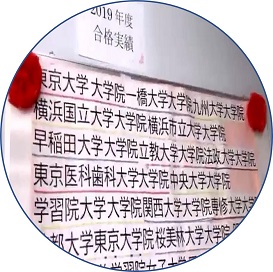 2019年度
合格実績
東京大学 大学院一橋大学大学院九州大学大学院
横浜国立大学大学院横浜市立大学大学院
早稲田大学大学院立教大学大学院法政大学大学院
東京医科歯科大学大学院中央大学大学院
学習院大学大学院関西大学大学院専修大学大
都大学東京大学院桜美林大学大学
学習院女子大学